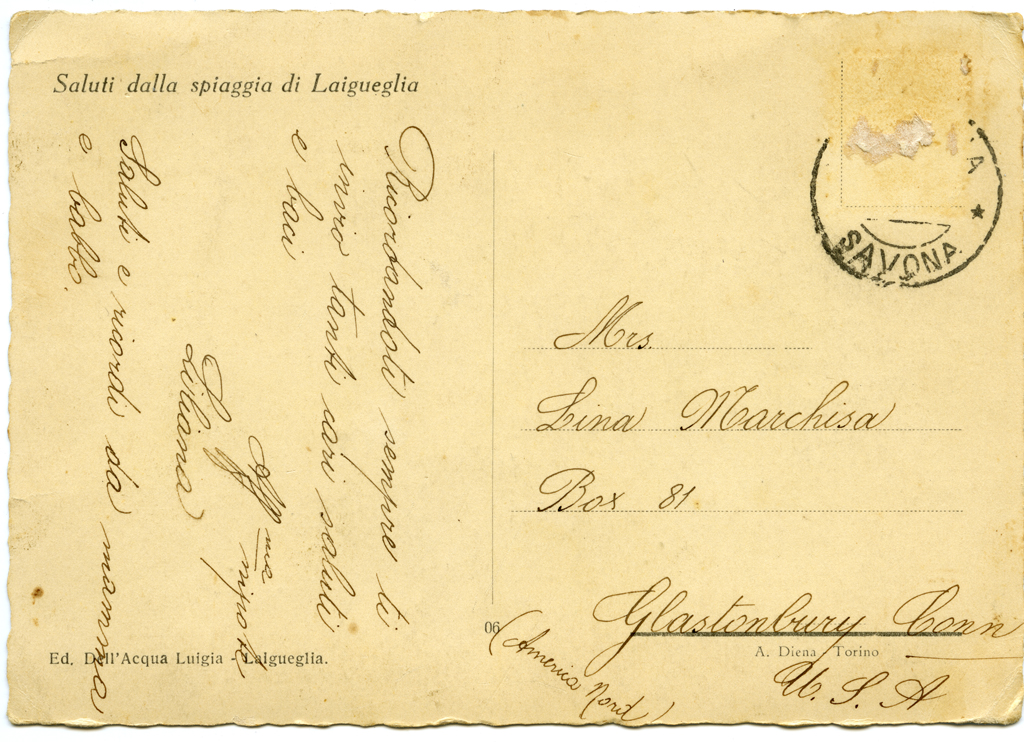 Saluti dalla spiaggia di Laigueglia
Ricordandoti sempre ti
invio tanti cari saluti
e baci
Aff.ma nipote
Liliana
Saluti e ricordi da mamma
e babbo.
SAVONA
Mrs.
Lina Marchisa
Box 81
Glastonbury Conn
U. S. A
(America Nord)
06
Ed. Dell'Acqua Luigia - Laigueglia.
A. Diena - Torino